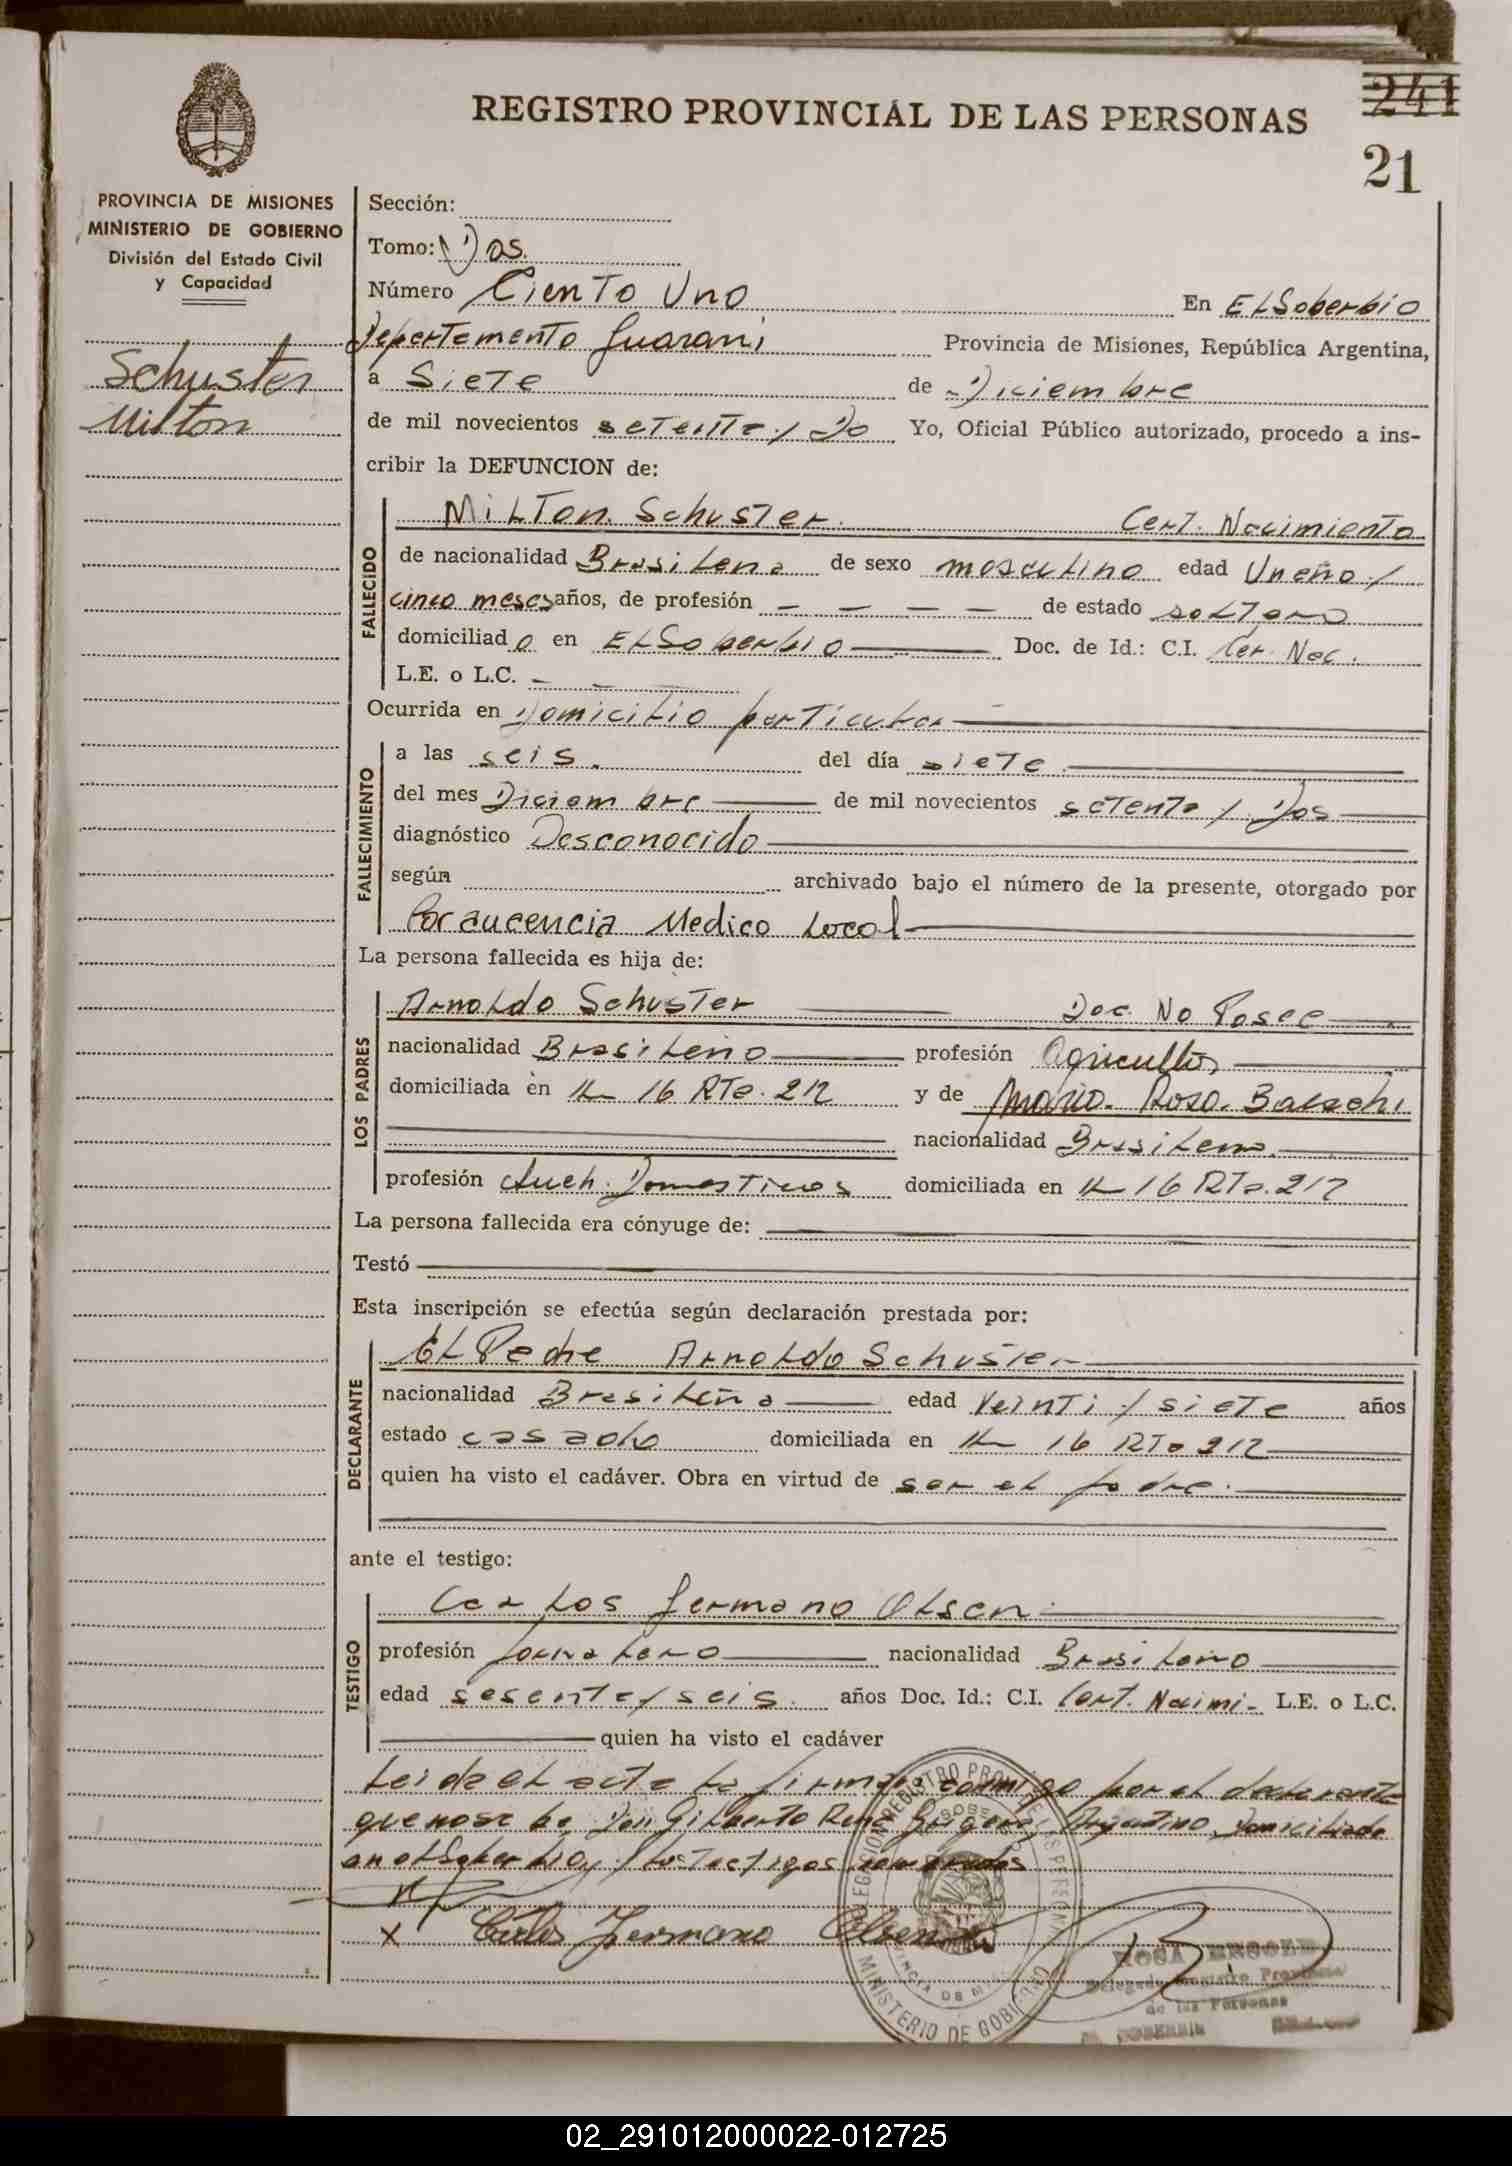 REGISTRO PROVINCIAL DE LAS PERSONAS
241
21
PROVINCIA DE MISIONES
MINISTERIO DE GOBIERNO
División del Estado Civil
y Capacidad
Schuster
Milton
Sección:
Tomo: Dos.
Número Ciento Uno En El Soberbio
Departamento Guarani Provincia de Misiones, República Argentina,
a Siete de Diciembre
de mil novecientos setenta y Do Yo, Oficial Público autorizado, procedo a ins-
cribir la DEFUNCION de:
FALLECIDO
Milton Schuster. Cert. Nacimiento
de nacionalidad Brasilena de sexo masculino edad Un año y
cinco meses años, de profesión — — — — de estado soltero
domiciliado en El Soberbio Doc. de Id.: C.I. Cer. Nac.
L.E. o L.C. — — —
Ocurrida en Domicilio particular
FALLECIMIENTO
a las seis. del día siete
del mes Diciembre de mil novecientos setenta y Dos
diagnóstico Desconocido
según archivado bajo el número de la presente, otorgado por
Por aucencia Medico Local
La persona fallecida es hija de:
LOS PADRES
Arnoldo Schuster Doc. No Posee
nacionalidad Brasileño profesión Agricultor
domiciliada en K 16 RTa. 212 y de Maria Rosa
nacionalidad Brasilena.
profesión Domesticos domiciliada en K 16 RTa. 212
La persona fallecida era cónyuge de:
Testó
Esta inscripción se efectúa según declaración prestada por:
DECLARANTE
El Padre Arnoldo Schuster
nacionalidad Brasileña edad Veinti y siete años
estado casado domiciliada en K 16 RTa 212
quien ha visto el cadáver. Obra en virtud de ser el padre.
ante el testigo:
TESTIGO
Carlos Germano Olsen
profesión Jornalero nacionalidad Brasileño
edad sesenta y seis. años Doc. Id.: C.I. Cert. Nacimi- L.E. o L.C.
quien ha visto el cadáver
Leida el acta la firma conmigo por el declarante
que no sabe Don Gilberto Rene Argentino Domiciliado
en el Soberbio y los testigos nombrados
x Carlos Germano Olsen
MINISTERIO DE GOBIERNO
ROSA
Delegada Registro Provincial
de las Personas
EL SOBERBIO
02_291012000022-012725